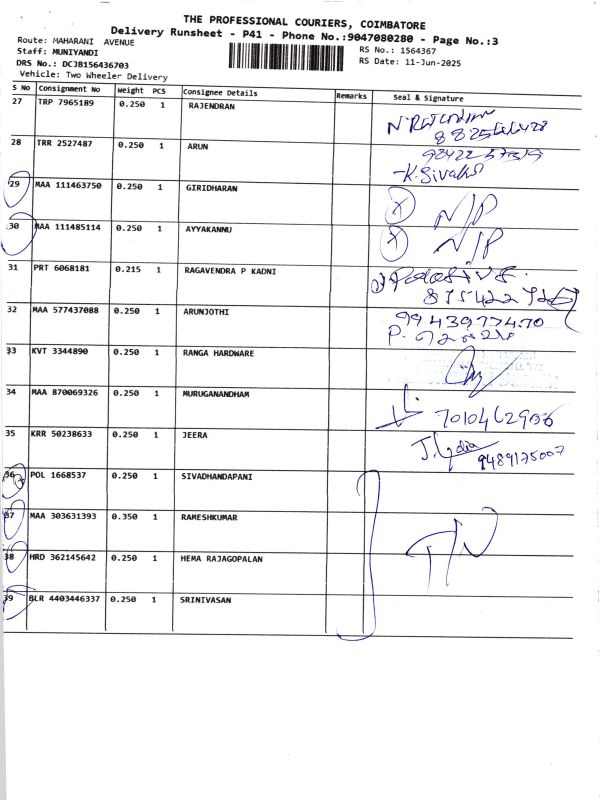 THE PROFESSIONAL COURIERS, COIMBATORE
Delivery Runsheet - P41 - Phone No.:9047080280 - Page No.:3
Route: MAHARANI AVENUE
Staff: MUNIYANDI
DRS No.: DCJB156436703
Vehicle: Two Wheeler Delivery
RS No.: 1564367
RS Date: 11-Jun-2025
S No Consignment No Weight PCS Consignee Details Remarks Seal & Signature
27 TRP 7965189 0.250 1 RAJENDRAN
28 TRR 2527487 0.250 1 ARUN
K.Sivaksi
29 MAA 111463750 0.250 1 GIRIDHARAN X N/P
30 MAA 111485114 0.250 1 AYYAKANNU X N/P
31 PRT 6068181 0.215 1 RAGAVENDRA P KADNI
32 MAA 577437088 0.250 1 ARUNJOTHI 9943977470
33 KVT 3344890 0.250 1 RANGA HARDWARE
34 MAA 870069326 0.250 1 MURUGANANDHAM
35 KRR 50238633 0.250 1 JEERA J. Lydia
9489175007
36 POL 1668537 0.250 1 SIVADHANDAPANI
37 MAA 303631393 0.350 1 RAMESHKUMAR
38 HRD 362145642 0.250 1 HEMA RAJAGOPALAN
39 BLR 4403446337 0.250 1 SRINIVASAN